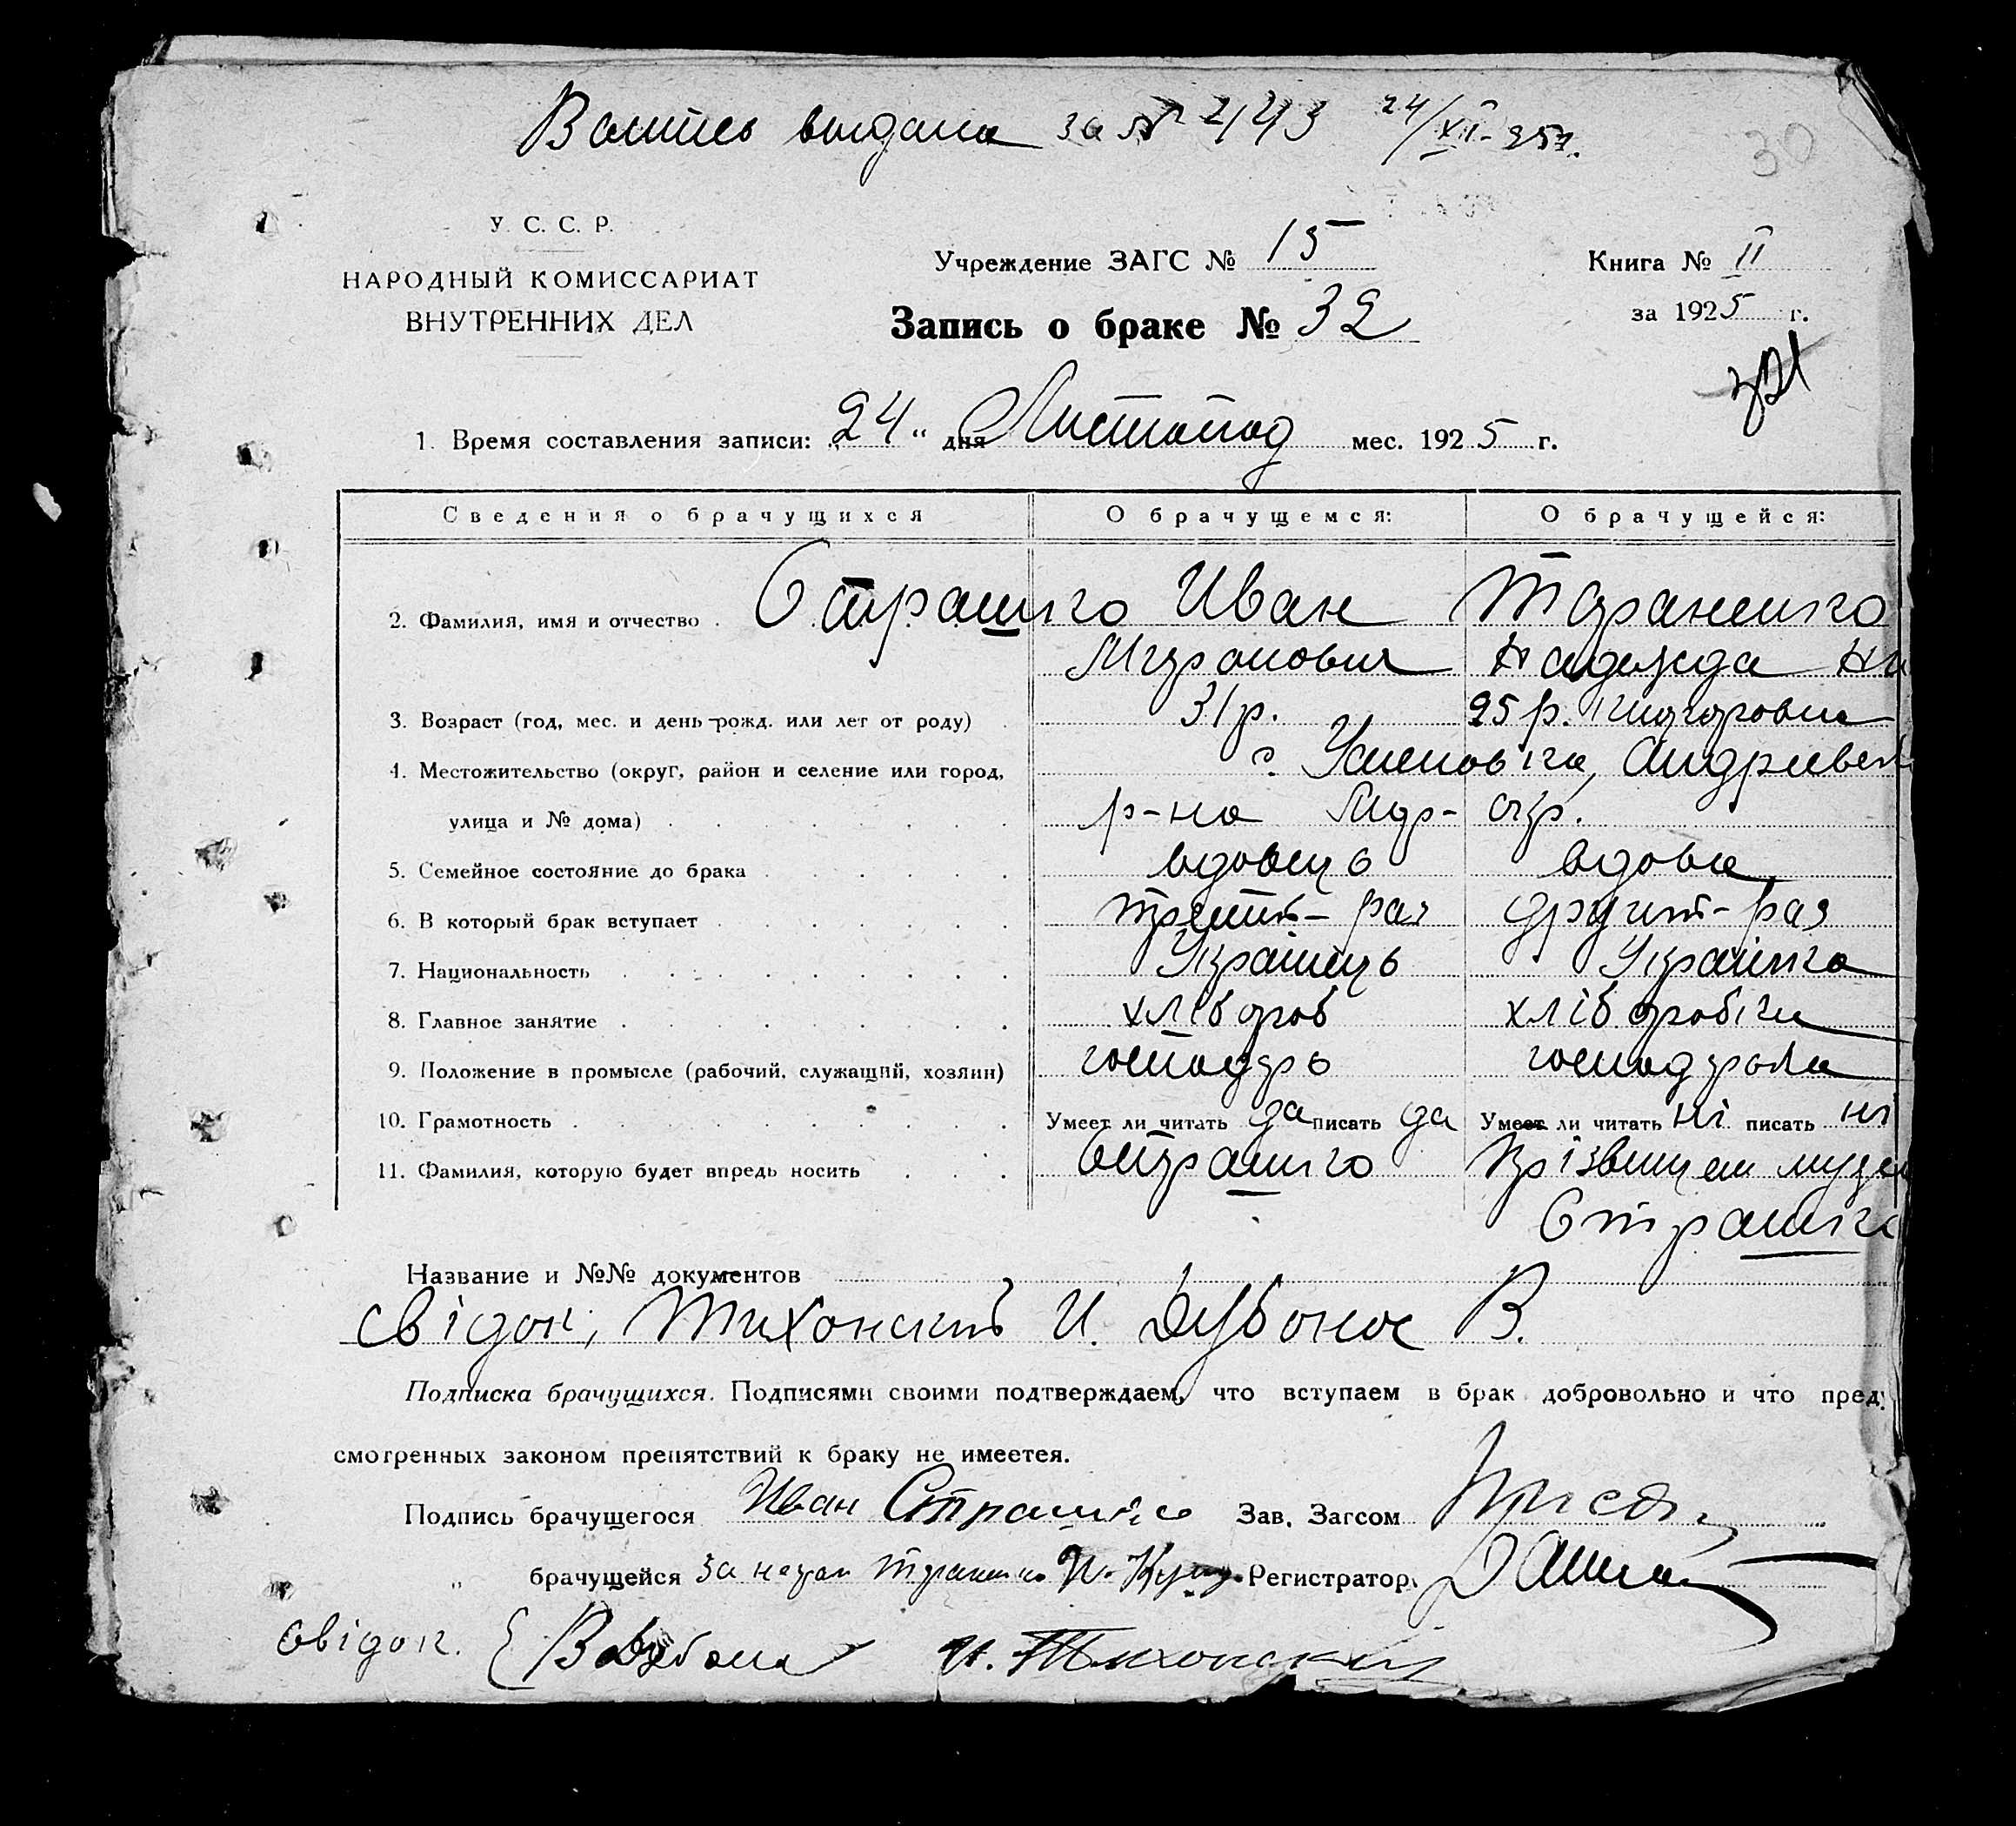 выдана за № 443 24/XII-257.
30
У. С. С. Р.
НАРОДНЫЙ КОМИССАРИАТ
ВНУТРЕННИХ ДЕЛ
Учреждение ЗАГС № 15
Запись о браке № 32
Книга № II
за 1925 г.
1. Время составления записи: 24 " дня Листопад мес. 1925 г.
Сведения о брачущихся О брачущемся: О брачущейся:
2. Фамилия, имя и отчество . Страшко Иван Тараненко
Миронович Надежда Ни
3. Возраст (год, мес. и день рожд. или лет от роду) . 31 р. 25 р.
4. Местожительство (округ, район и селение или город, с. Андриевск
улица и № дома) р-на окр.
5. Семейное состояние до брака вдовець вдова
6. В который брак вступает раз другий-раз
7. Национальность Украінець Украінка
8. Главное занятие хлібороб хліборобка
9. Положение в промысле (рабочий, служащий, хозяин) господарь
10. Грамотность Умеет ли читать да писать да Умеет ли читать ні писать ні
11. Фамилия, которую будет впредь носить Страшко прізвищем мужа
Страшко
Название и №№ документов
свідок, Тихонский И. Дубонос В.
Подписка брачущихся. Подписями своими подтверждаем, что вступаем в брак добровольно и что пред-
смотренных законом препятствий к браку не имеется.
Подпись брачущегося Иван Страшко Зав. Загсом
" брачущейся за Регистратор
свідок. И. Тихонский